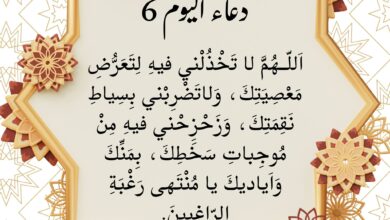 دعاء اليوم 6
اَللّـهُمَّ لا تَخْذُلْني فيهِ لِتَعَرُّضِ
مَعْصِيَتِكَ، وَلاتَضْرِبْني بِسِياطِ
نَقِمَتِكَ، وَزَحْزِحْني فيهِ مِنْ
مُوجِباتِ سَخَطِكَ، بِمَنِّكَ
وَاَياديكَ يا مُنْتَهى رَغْبَةِ
الرّاغِبينَ.